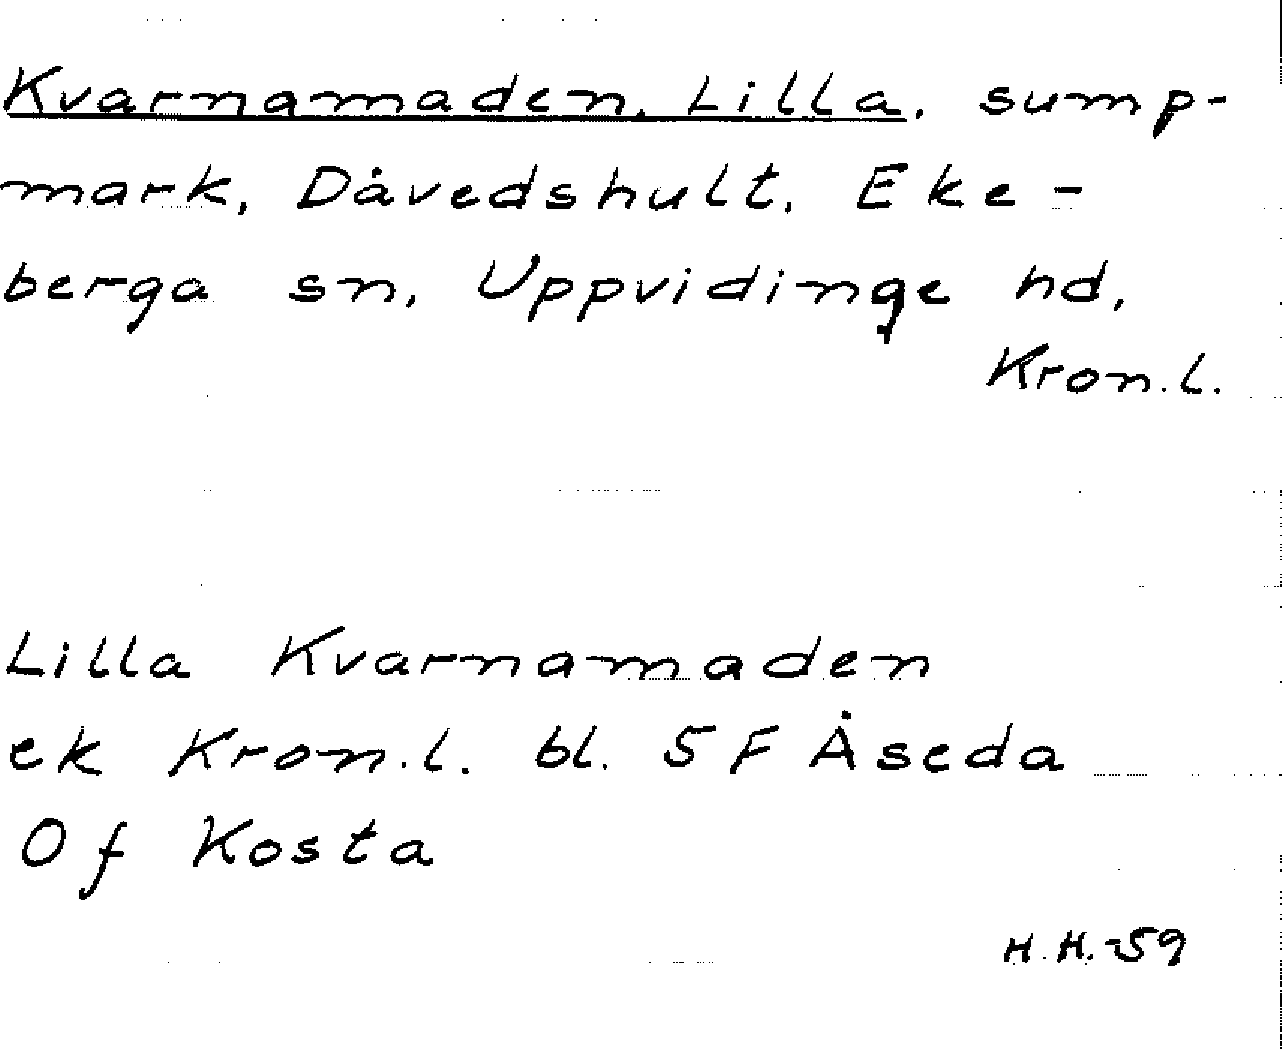 Kvarnamaden, Lilla, sump-
mark, Dåvedshult, Eke-
berga sn, Uppvidinge hd,
Kron.l.
Lilla Kvarnamaden
ek Kron.l. bl. 5 F Åseda
Of Kosta
H.H.-59